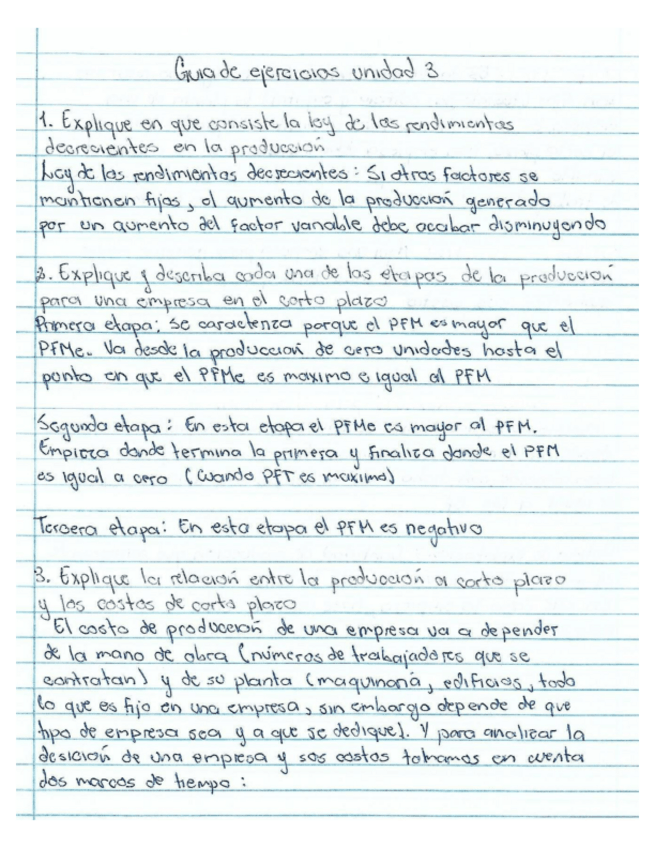 Guia de ejercicios unidad 3
1. Explique en que consiste la ley de los rendimientos
decrecientes en la producción
Ley de los rendimientos decrecientes: Si otros factores se
mantienen fijos, el aumento de la producción generado
por un aumento del factor variable debe acabar disminuyendo
2. Explique y describa cada una de las etapas de la producción
para una empresa en el corto plazo
Primera etapa: Se caracteriza porque el PFM es mayor que el
PFMe. Va desde la producción de cero unidades hasta el
punto en que el PFMe es maximo e igual al PFM
Segunda etapa: En esta etapa el PFMe es mayor al PFM.
Empieza donde termina la primera y finaliza donde el PFM
es igual a cero (Cuando PFT es maximo)
Tercera etapa: En esta etapa el PFM es negativo
3. Explique la relación entre la producción a corto plazo
y los costos de corto plazo
El costo de producción de una empresa va a depender
de la mano de obra (números de trabajadores que se
contratan) y de su planta (maquinaria, edificios, todo
lo que es fijo en una empresa, sin embargo depende de que
tipo de empresa sea y a que se dedique). Y para analizar la
desición de una empresa y sos costos tomamos en cuenta
dos marcos de tiempo: